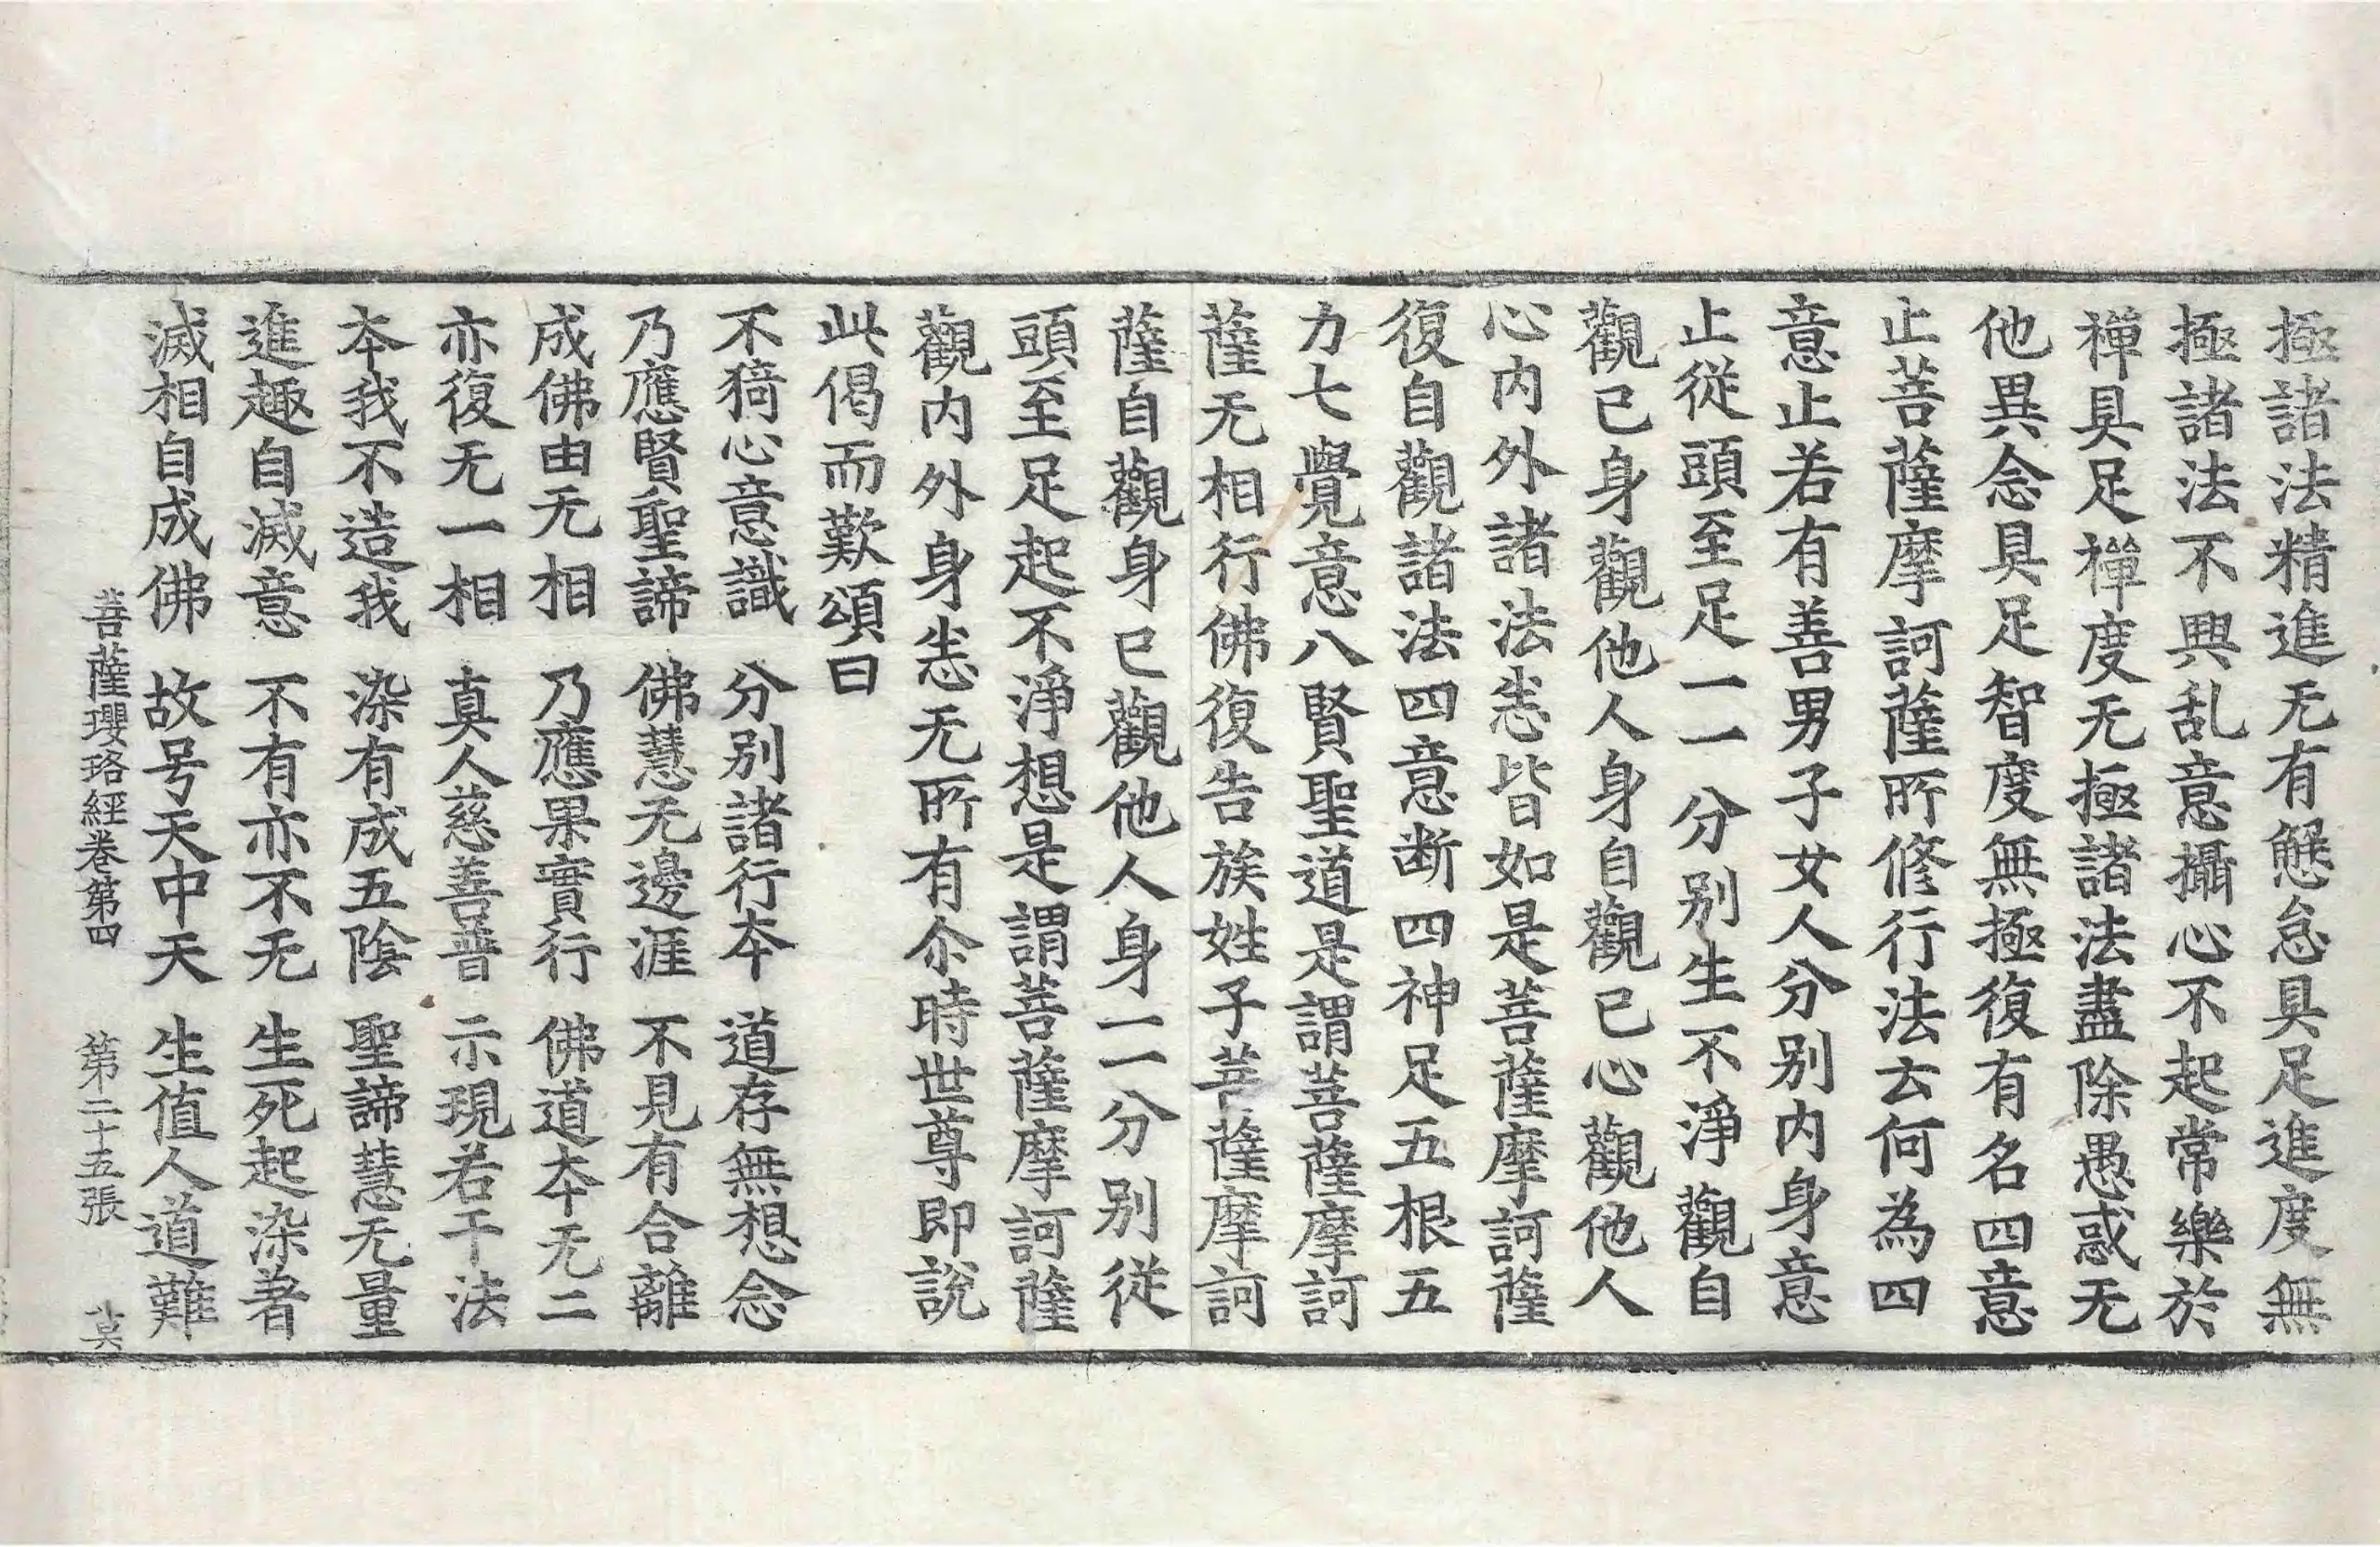 極諸法精進无有懈怠具足進度無
極諸法不興乱意攝心不起常樂於
禅具足禅度无極諸法盡除愚惑无
他異念具足智度無極復有名四意
止菩薩摩訶薩所修行法云何為四
意止若有善男子女人分别内身意
止從頭至足一一分别生不淨觀自
觀已身觀他人身自觀已心觀他人
心内外諸法恙皆如是菩薩摩訶薩
復自觀諸法四意断四神足五根五
力七覺意八賢聖道是謂菩薩摩訶
薩无相行佛復告族姓子菩薩摩訶
薩自觀身已觀他人身一一分别従
頭至足起不淨想是謂菩薩摩訶薩
觀内外身恙无所有尒時世尊即說
此偈而歎頌曰
不猗心意識　分别諸行本　道存無想念
乃應賢聖諦　佛慧无邊涯　不見有合離
成佛由无相　乃應果實行　佛道本无二
亦復无一相　真人慈善普　示現若干法
本我不造我　染有成五陰　聖諦慧无量
進趣自滅意　不有亦不无　生死起染著
滅相自成佛　故号天中天　生值人道難
菩薩瓔珞經卷第四　第二十五張